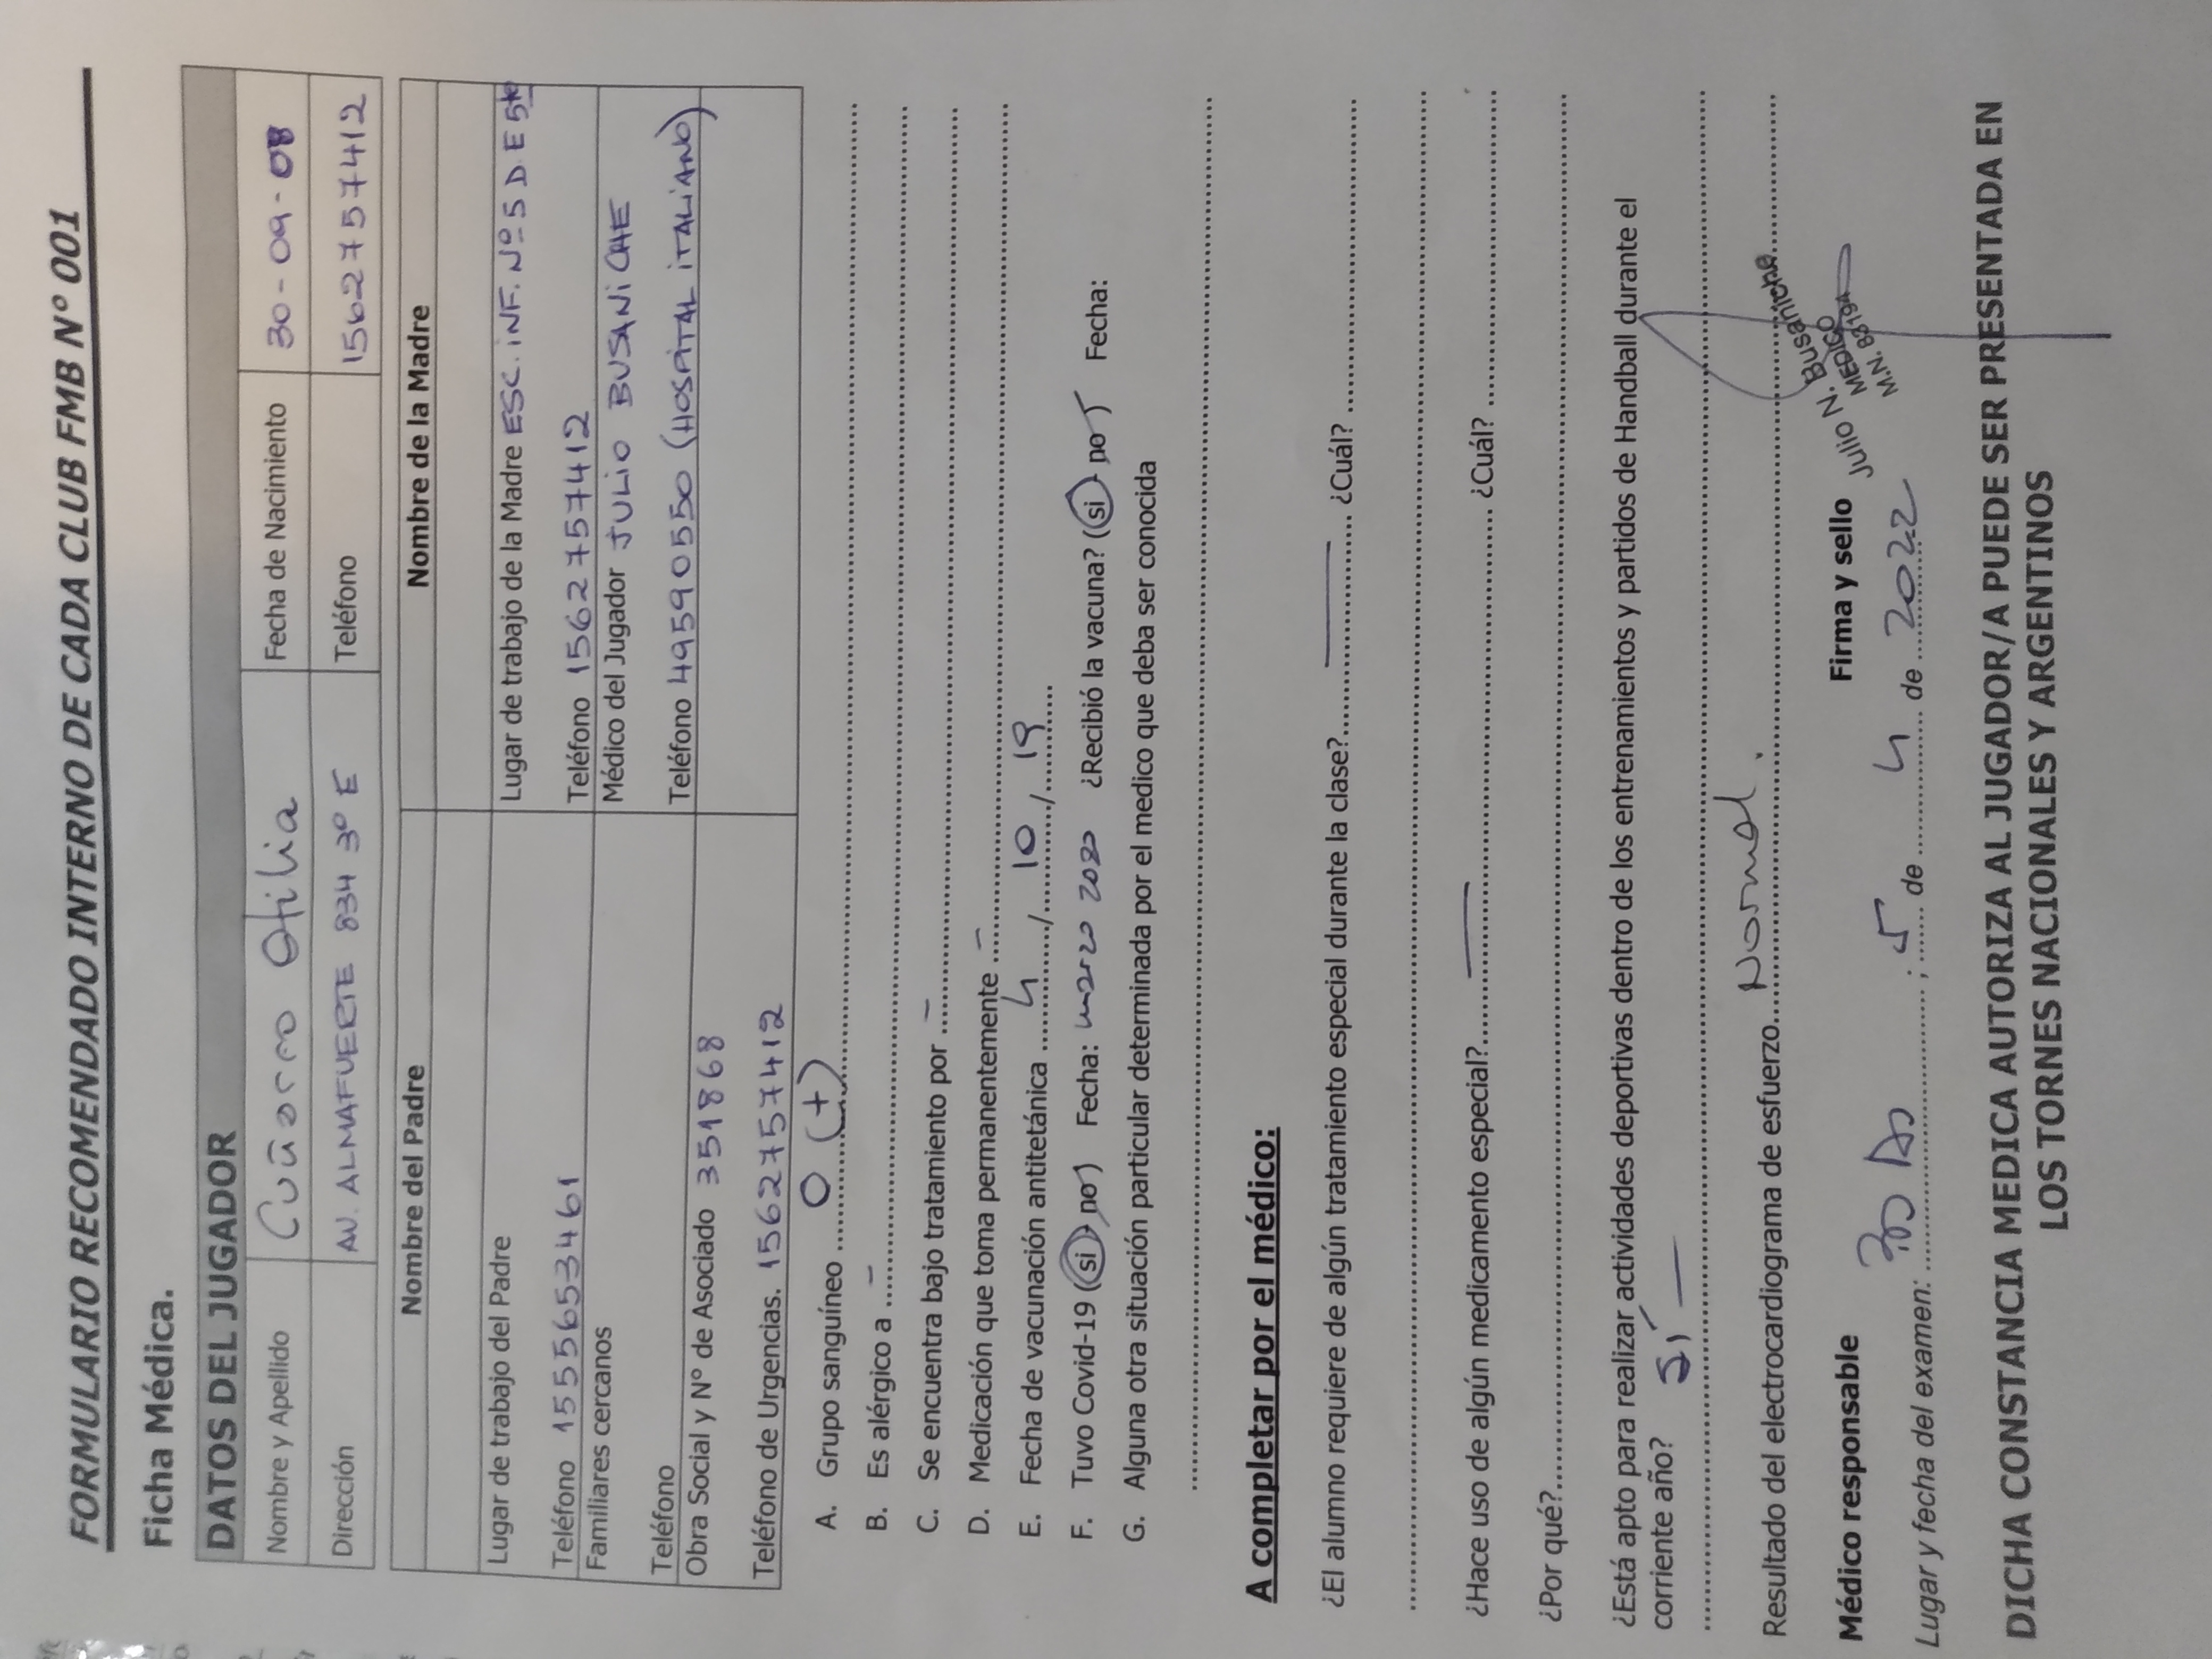 FORMULARIO RECOMENDADO INTERNO DE CADA CLUB FMB N° 001
Ficha Médica.
DATOS DEL JUGADOR
Nombre y Apellido Otilia Fecha de Nacimiento 30-09-08
Dirección AV. ALMAFUERTE 834 3º E Teléfono 1562757412
Nombre del Padre Nombre de la Madre
Lugar de trabajo del Padre Lugar de trabajo de la Madre ESC. INF. Nº 5 D E 5to
Teléfono 1555653461 Teléfono 1562757412
Familiares cercanos Médico del Jugador JULIO BUSANICHE
Teléfono Teléfono 49590550 (HOSPITAL ITALIANO)
Obra Social y Nº de Asociado 351868
Teléfono de Urgencias. 1562757412
A. Grupo sanguíneo O (+)
B. Es alérgico a –
C. Se encuentra bajo tratamiento por –
D. Medicación que toma permanentemente –
E. Fecha de vacunación antitetánica 4 / 10 / 19
F. Tuvo Covid-19 (si - no) Fecha: marzo ¿Recibió la vacuna? (si - no) Fecha:
G. Alguna otra situación particular determinada por el medico que deba ser conocida
A completar por el médico:
¿El alumno requiere de algún tratamiento especial durante la clase? — ¿Cuál?
¿Hace uso de algún medicamento especial? — ¿Cuál?
¿Por qué?
¿Está apto para realizar actividades deportivas dentro de los entrenamientos y partidos de Handball durante el
corriente año? Sí —
Resultado del electrocardiograma de esfuerzo Normal.
Julio N. Busaniche
MEDICO
M.N. 83194
Médico responsable Firma y sello
Lugar y fecha del examen: ; 5 de 4 de 2022
DICHA CONSTANCIA MEDICA AUTORIZA AL JUGADOR/A PUEDE SER PRESENTADA EN
LOS TORNES NACIONALES Y ARGENTINOS